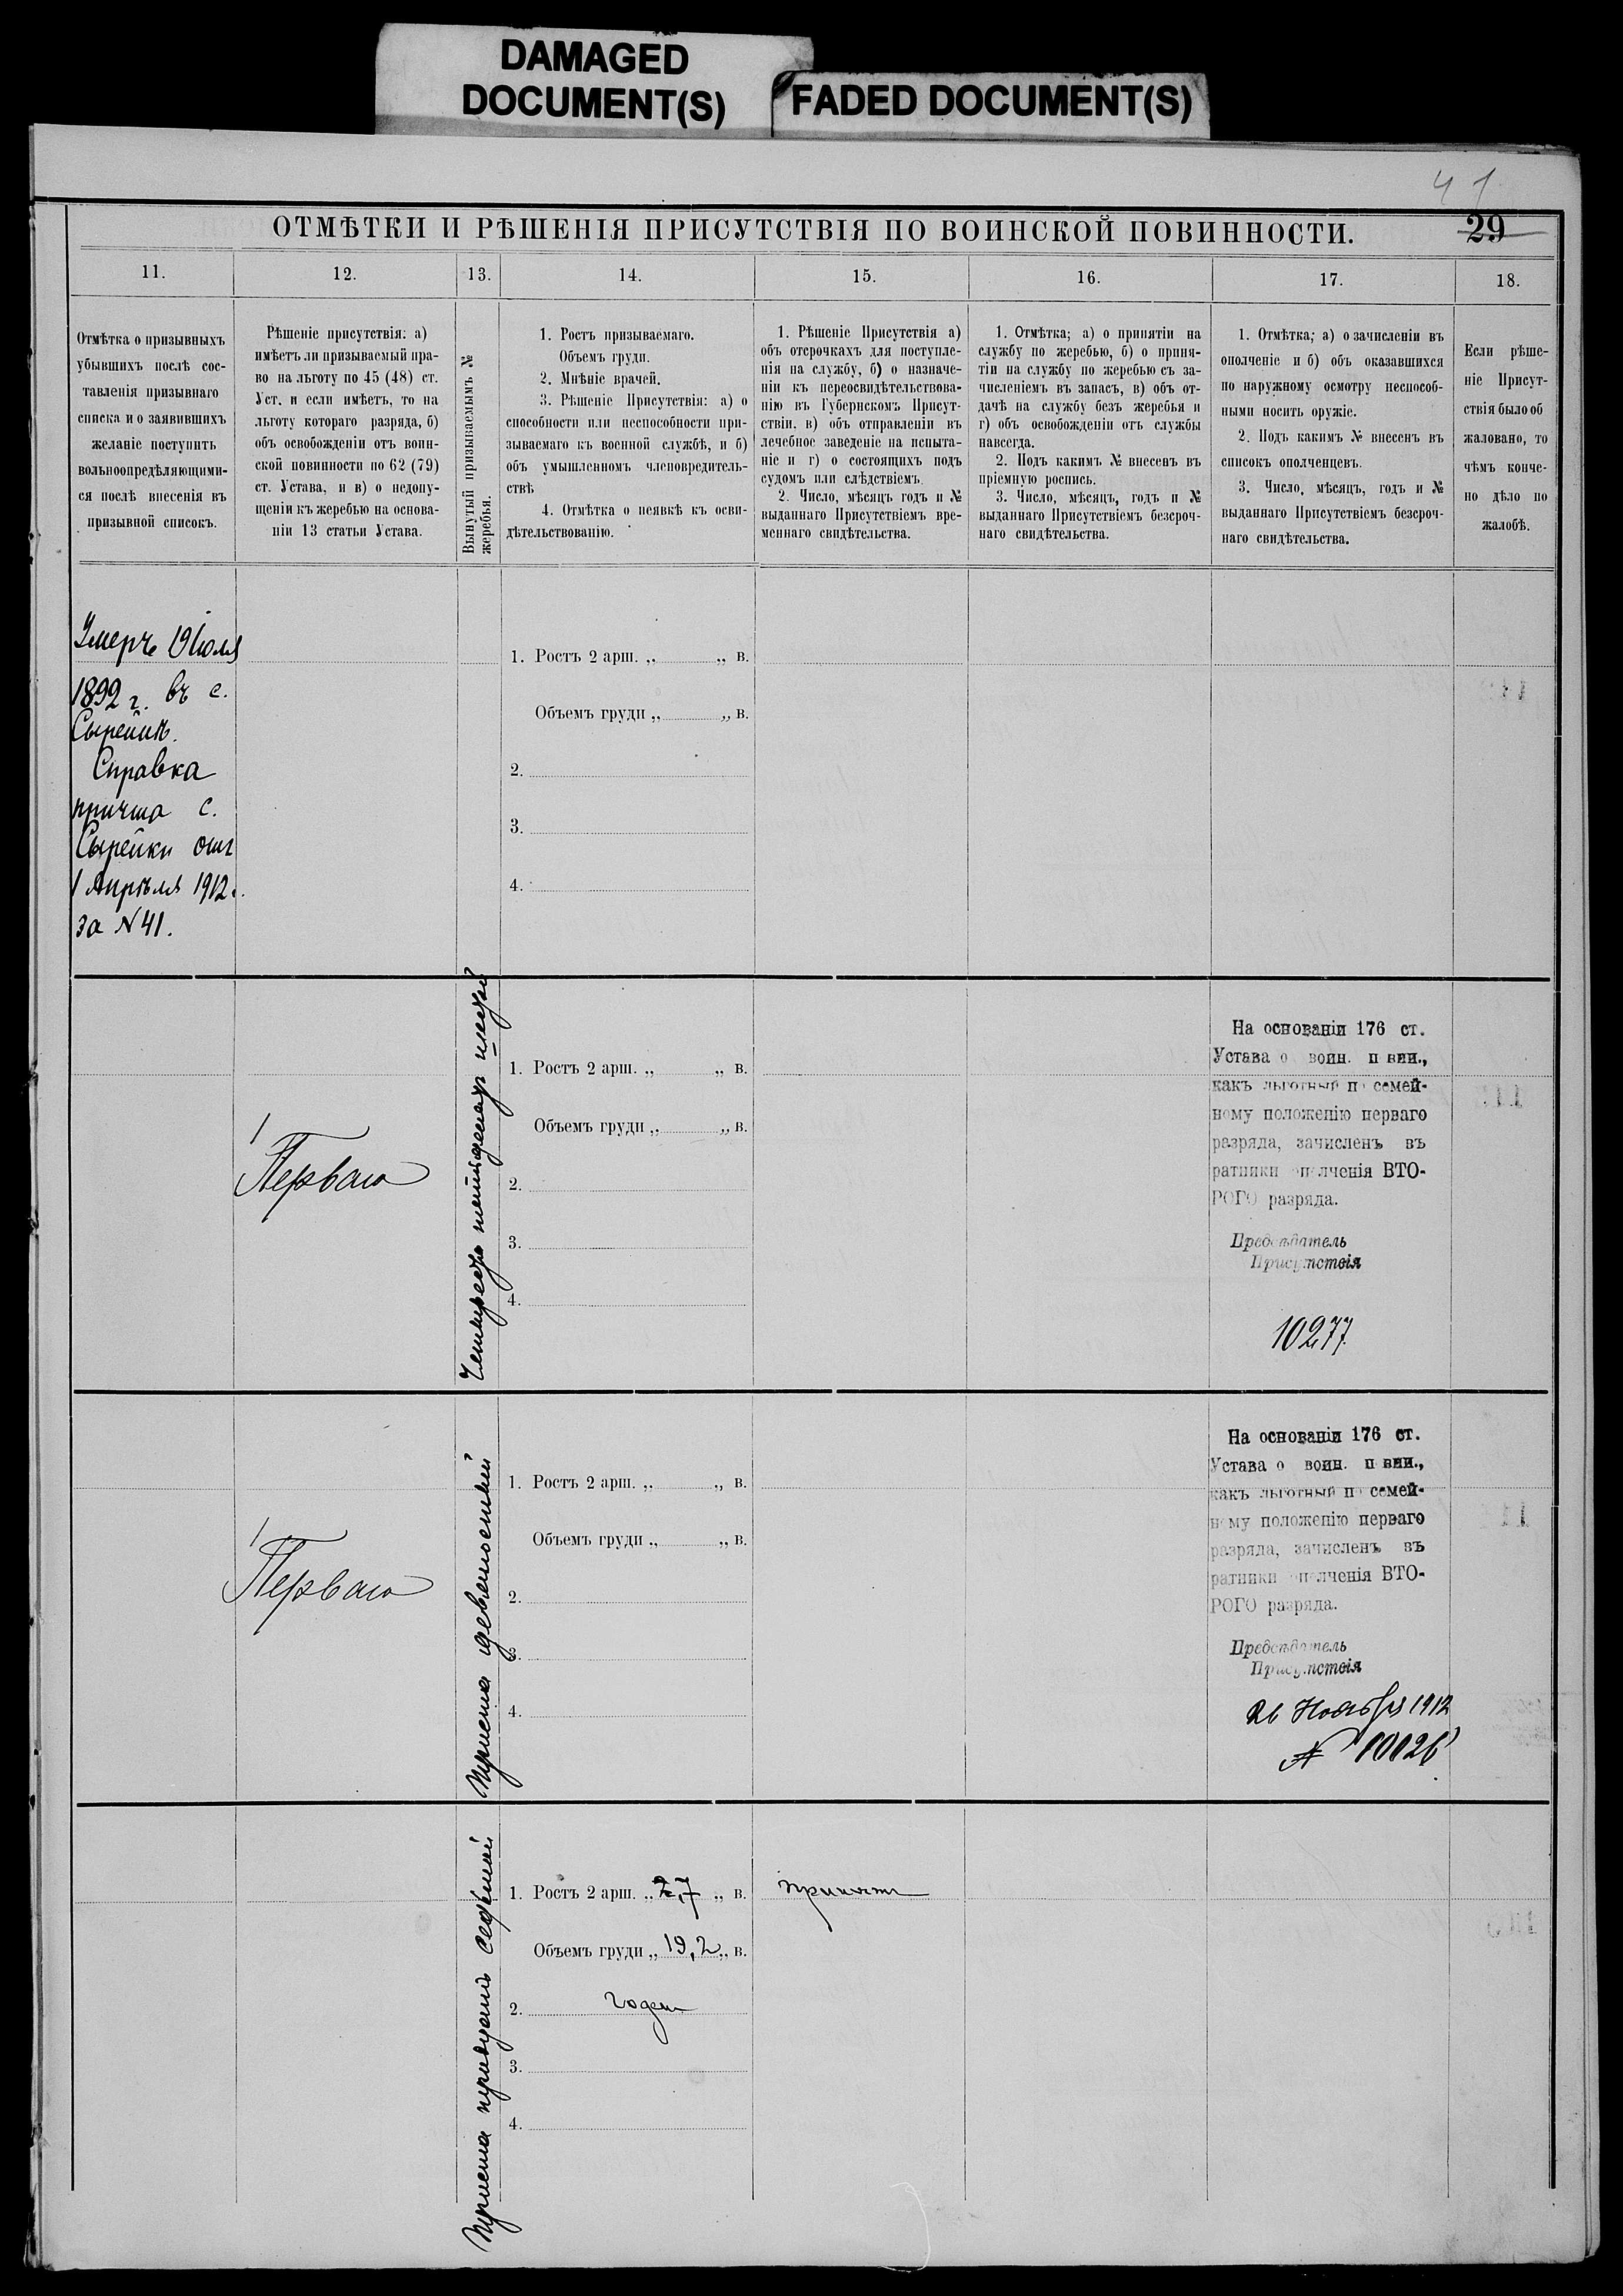 DAMAGED
DOCUMENT(S)
FADED DOCUMENT(S)
41
ОТМѢТКИ И РѢШЕНІЯ ПРИСУТСТВІЯ ПО ВОИНСКОЙ ПОВИННОСТИ.
29
11.
12.
13.
14.
15.
16.
17.
18.
Отмѣтка о призывныхъ
убывшихъ послѣ сос-
тавленія призывнаго
списка и о заявившихъ
желаніе поступить
вольноопредѣляющими-
ся послѣ внесенія въ
призывной списокъ.
Рѣшеніе присутствія: а)
имѣетъ ли призываемый пра-
во на льготу по 45 (48) ст.
Уст. и если имѣетъ, то на
льготу котораго разряда, б)
объ освобожденіи отъ воин-
ской повинности по 62 (79)
ст. Устава, и в) о недопу-
щеніи къ жеребью на основа-
ніи 13 статьи Устава.
Вынутый призываемымъ №
жеребья.
1. Ростъ призываемаго.
Объемъ груди.
2. Мнѣніе врачей.
3. Рѣшеніе Присутствія: а) о
способности или неспособности при-
зываемаго къ военной службѣ, и б)
объ умышленномъ членовредитель-
ствѣ
4. Отмѣтка о неявкѣ къ осви-
дѣтельствованію.
1. Рѣшеніе Присутствія а)
объ отсрочкахъ для поступле-
нія на службу, б) о назначе-
ніи къ переосвидѣтельствова-
нію въ Губернскомъ Присут-
ствіи. в) объ отправленіи въ
лечебное заведеніе на испыта-
ніе и г) о состоящихъ подъ
судомъ или слѣдствіемъ.
2. Число, мѣсяцъ годъ и №
выданнаго Присутствіемъ вре-
меннаго свидѣтельства.
1. Отмѣтка; а) о принятіи на
службу по жеребью, б) о приня-
тіи на службу по жеребью съ за-
численіемъ въ запасъ, в) объ от-
дачѣ на службу безъ жеребья и
г) объ освобожденіи отъ службы
навсегда.
2. Подъ какимъ № внесенъ въ
пріемную роспись.
3. Число, мѣсяцъ, годъ и №
выданнаго Присутствіемъ безсроч-
наго свидѣтельства.
1. Отмѣтка; а) о зачисленіи въ
ополченіе и б) объ оказавшихся
по наружному осмотру неспособ-
ными носить оружіе.
2. Подъ какимъ № внесенъ въ
списокъ ополченцевъ.
3. Число, мѣсяцъ, годъ и №
выданнаго Присутствіемъ безсроч-
наго свидѣтельства.
Если рѣше-
ніе Присут-
ствія было об
жаловано, то
чѣмъ конче-
но дѣло по
жалобѣ.
Умеръ 19 Іюля
1892 г. въ с.
Сырейкѣ.
Справка
причта с.
Сырейки отъ
1 Апрѣля 1912 г.
за N 41.
1. Ростъ 2 арш. „ „ в.
Объемъ груди „ „ в.
2.
3.
4.
Перваго
Четыреста пятьдесятъ шестой
1. Ростъ 2 арш. „ „ в.
Объемъ груди „ „ в.
2.
3.
4.
На основаніи 176 ст.
Устава о воин. п вин.,
какъ льготный п семей-
ному положенію перваго
разряда, зачисленъ въ
ратники оп лченія ВТО-
РОГО разряда.
Предсѣдатель
Присутствія
10277
Перваго
Триста девяностый
1. Ростъ 2 арш. „ „ в.
Объемъ груди „ „ в.
2.
3.
4.
На основаніи 176 ст.
Устава о воин. п вин.,
какъ льготный п семей-
ному положенію перваго
разряда, зачисленъ въ
ратники оп лченія ВТО-
РОГО разряда.
Предсѣдатель
Присутствія
26 Ноября 1912
№ 10026
Триста тридцать седьмой
1. Ростъ 2 арш. „ 2,7 „ в.
Объемъ груди „ 19,2 „ в.
2. годен
3.
4.
принят